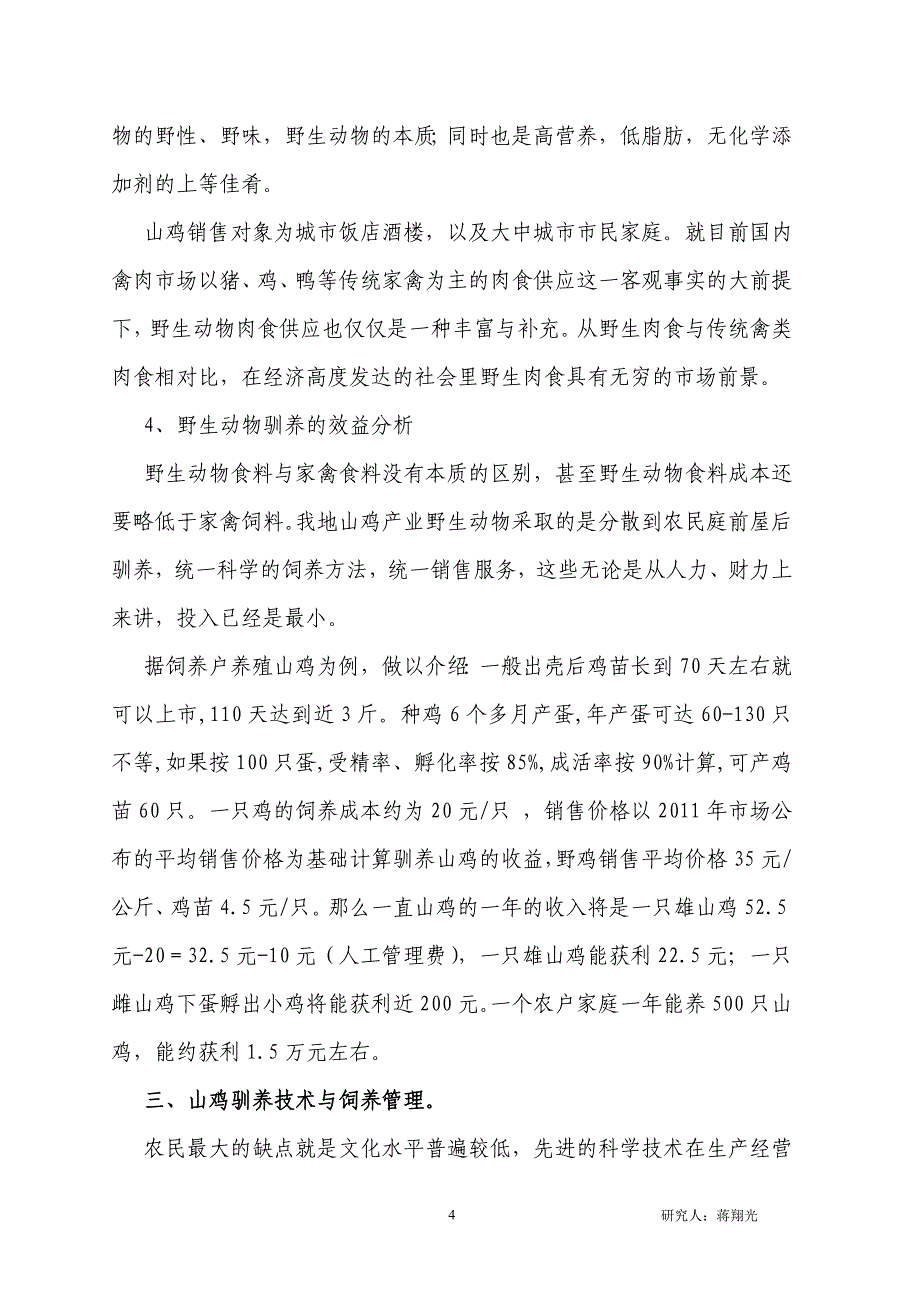 物的野性、野味，野生动物的本质；同时也是高营养，低脂肪，无化学添
加剂的上等佳肴。
山鸡销售对象为城市饭店酒楼，以及大中城市市民家庭。就目前国内
禽肉市场以猪、鸡、鸭等传统家禽为主的肉食供应这一客观事实的大前提
下，野生动物肉食供应也仅仅是一种丰富与补充。从野生肉食与传统禽类
肉食相对比，在经济高度发达的社会里野生肉食具有无穷的市场前景。
4、野生动物驯养的效益分析
野生动物食料与家禽食料没有本质的区别，甚至野生动物食料成本还
要略低于家禽饲料。我地山鸡产业野生动物采取的是分散到农民庭前屋后
驯养，统一科学的饲养方法，统一销售服务，这些无论是从人力、财力上
来讲，投入已经是最小。
据饲养户养殖山鸡为例，做以介绍：一般出壳后鸡苗长到 70 天左右就
可以上市,110 天达到近 3 斤。种鸡 6 个多月产蛋,年产蛋可达 60-130 只
不等,如果按 100 只蛋,受精率、孵化率按 85%,成活率按 90%计算,可产鸡
苗 60 只。一只鸡的饲养成本约为 20 元/只 ，销售价格以 2011 年市场公
布的平均销售价格为基础计算驯养山鸡的收益,野鸡销售平均价格 35 元/
公斤、鸡苗 4.5 元/只。那么一直山鸡的一年的收入将是一只雄山鸡 52.5
元-20＝32.5 元-10 元（人工管理费），一只雄山鸡能获利 22.5 元；一只
雌山鸡下蛋孵出小鸡将能获利近 200 元。一个农户家庭一年能养 500 只山
鸡，能约获利 1.5 万元左右。
三、山鸡驯养技术与饲养管理。
农民最大的缺点就是文化水平普遍较低，先进的科学技术在生产经营
4
研究人：蒋翔光